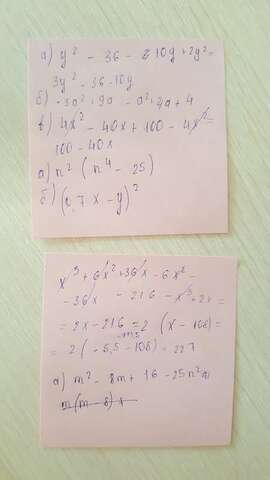 а) y² - 36 - 10y + 2y² =
3y² - 36 - 10y
б) -3a² + 9a - a² + 4a + 4
в) 4x² - 40x + 100 - 4x² =
100 - 40x
а) n² (n⁴ - 25)
б) (0,7x - y)²
x³ + 6x² + 36x - 6x² -
- 36x - 216 - x³ + 2x =
= 2x - 216 = 2 (x - 108) =
= 2 (-5,5 - 108) = - 227
а) m² - 8m + 16 - 25n²
m(m - 8) +